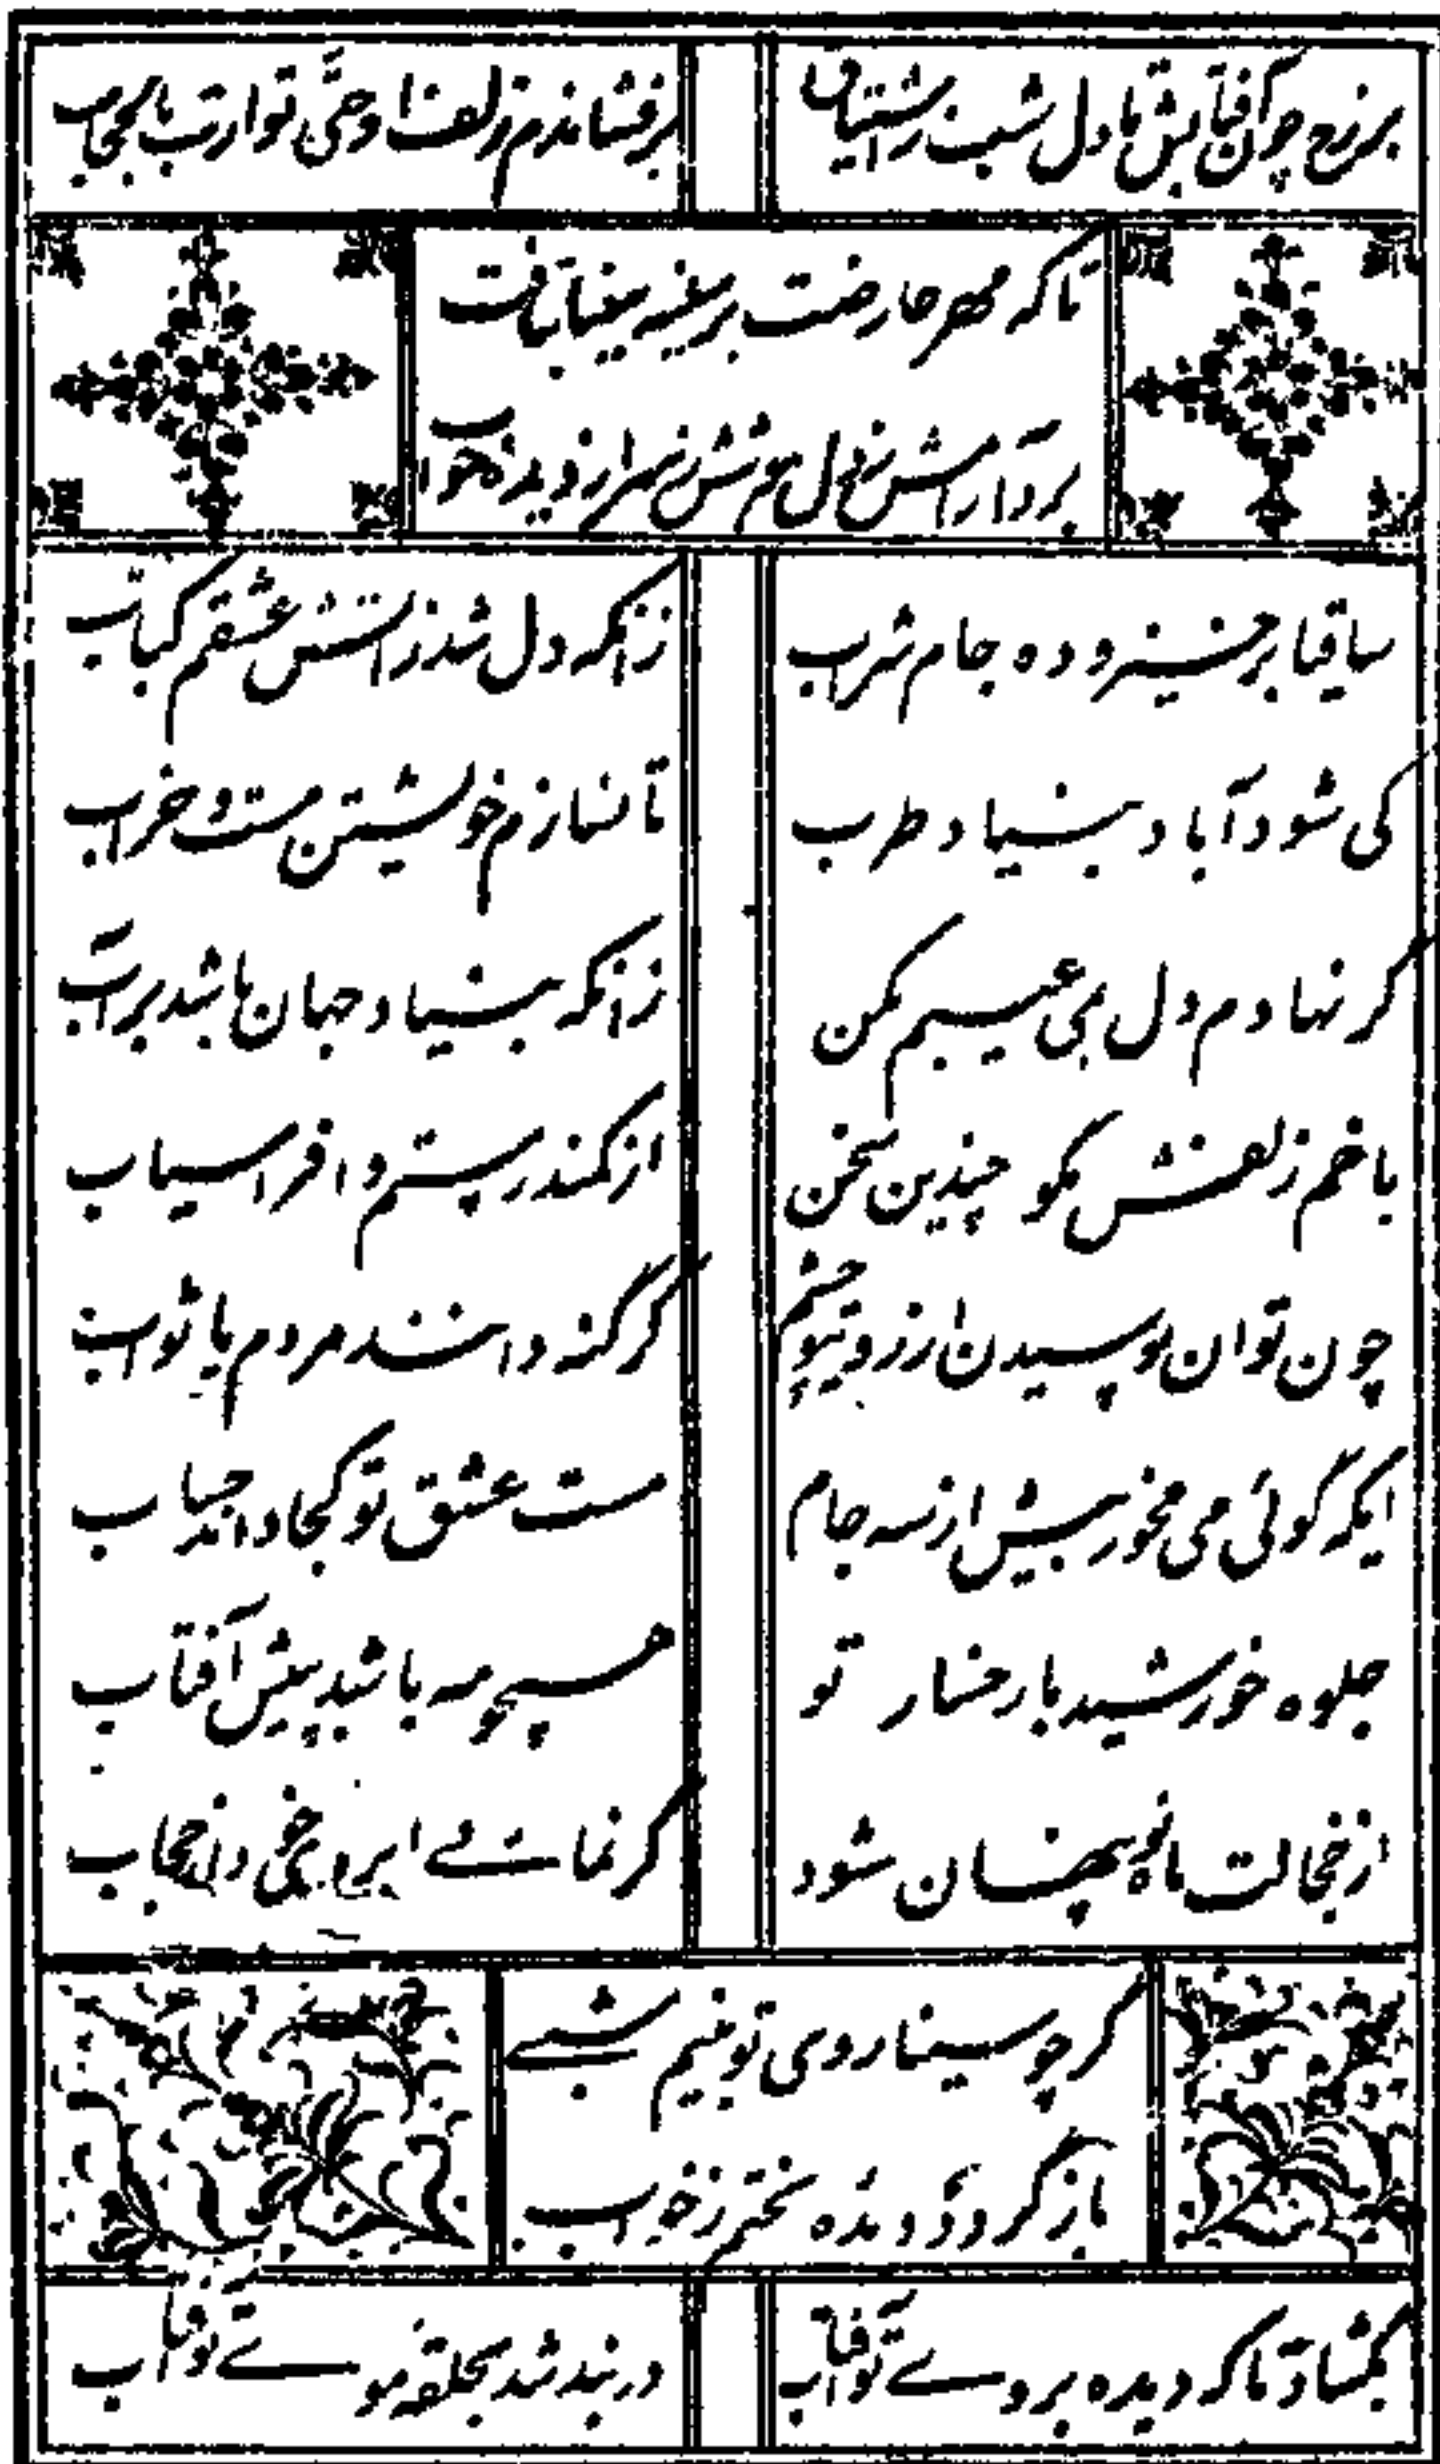 بر رخ چون آفتابش تا دل شب ز اشتیاق
برفشاندم زلف او حتی توارت بالحجاب
تا که مهر عارضت بر سینه سینا بتافت
برد آرامش ز دل هم خواب
ساقیا برخیز و ده جام شراب
زانکه دل شد ز اتش عشقم کباب
کی شود آباد بنیاد طرب
تا نسازم خویشتن مست و خراب
گر نهادم دل بمی عیبم مکن
زانکه بنیاد جهان باشد بر آب
با خم زلفش مگو چندین سخن
از کمند رستم و افراسیاب
چون توان پوسیدن از روی تو چشم
گر گنه دانند مردم یا ثواب
ایکه گوئی می مخور بیش از سه جام
مست عشق تو کجا داند حساب
جلوه خورشید با رخسار تو
همچو مه باشد پیش آفتاب
از خجالت ماه نو پنهان شود
گر نمائے ابروی خم در حجاب
گر چو سینا روی تو بینم شبے
باز گردد دیده بختم ز خواب
بگشاد تا که دیده بروے تو آفتاب
در بند شد بحلقه موے تو آفتاب